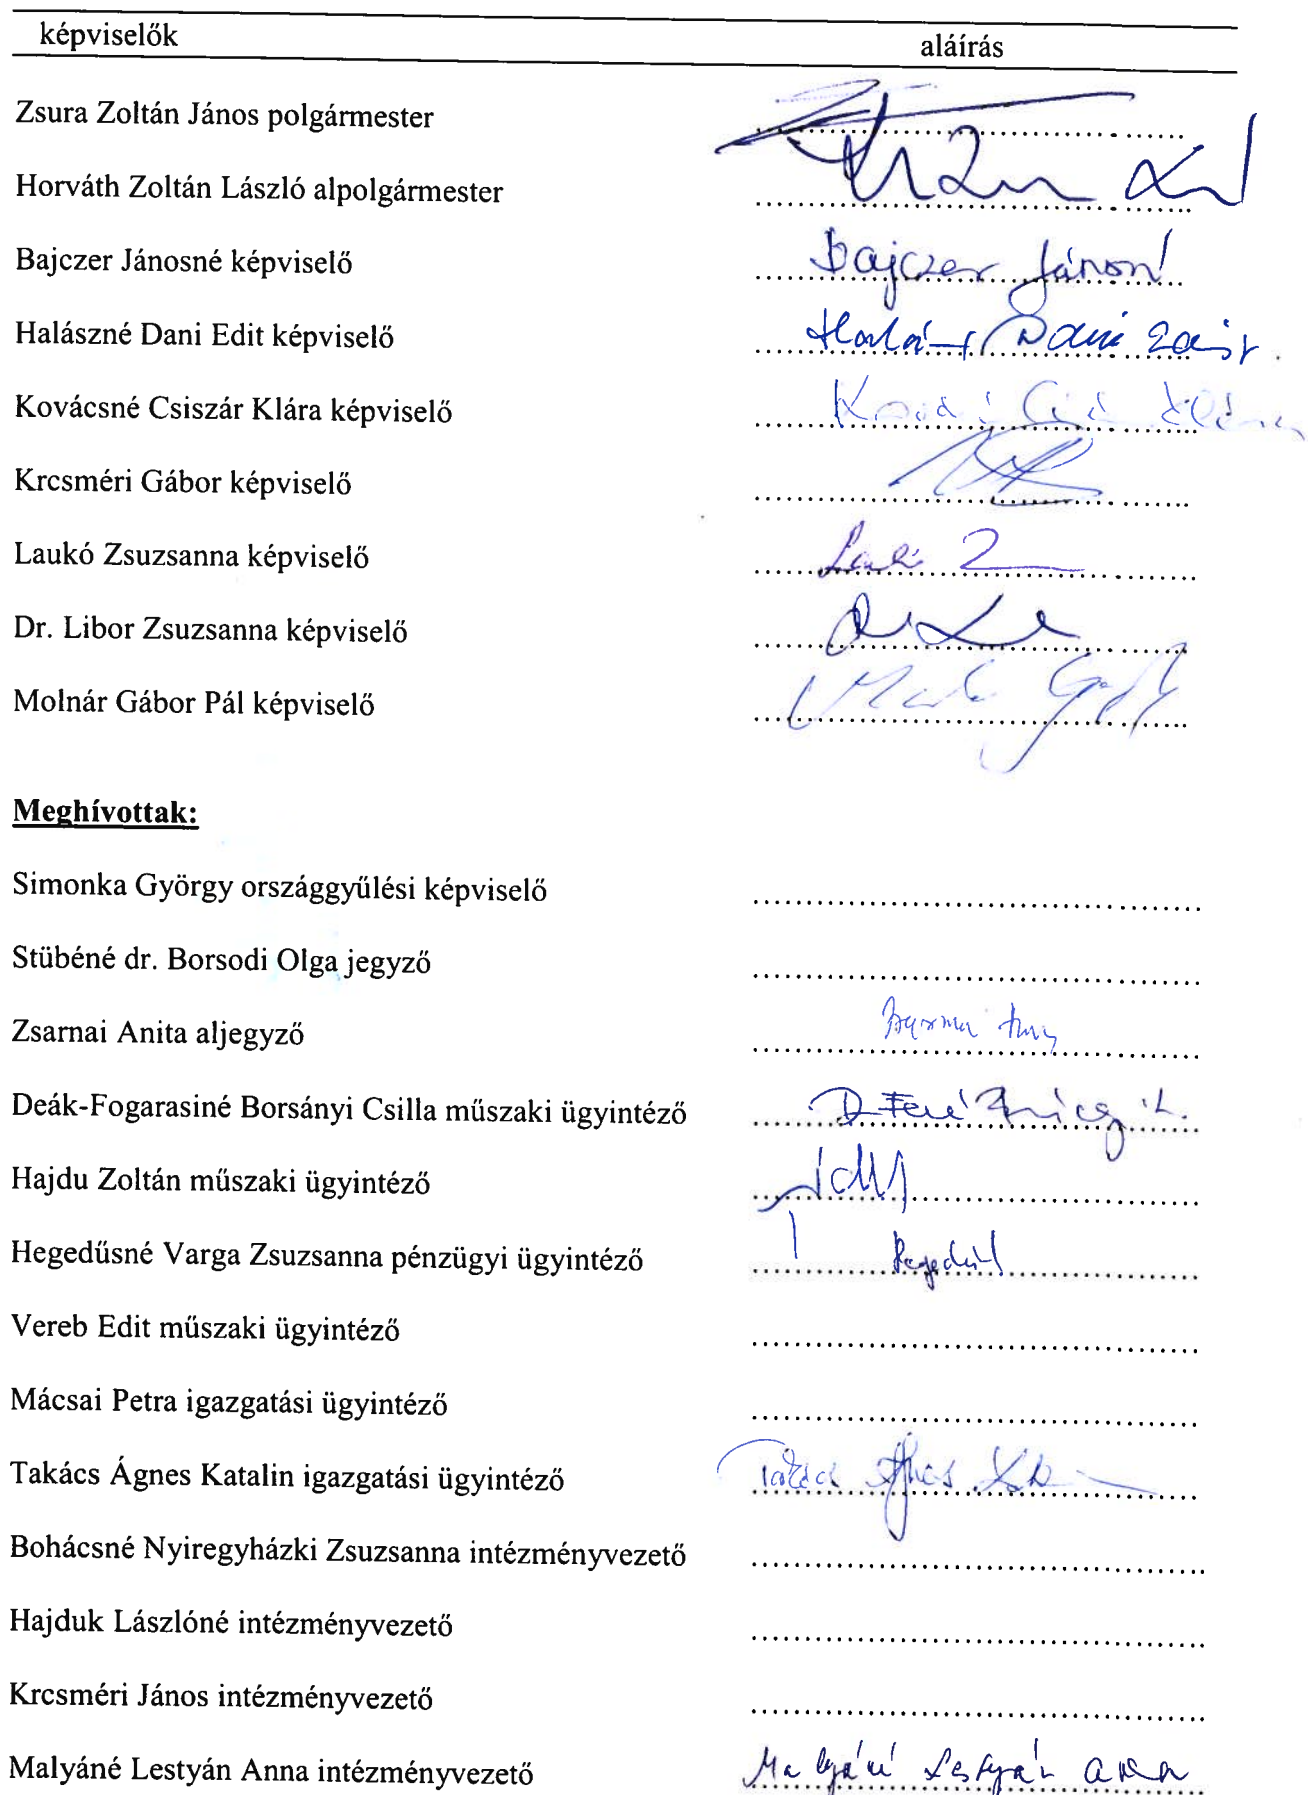 képviselők aláírás
Zsura Zoltán János polgármester
Horváth Zoltán László alpolgármester
Bajczer Jánosné képviselő Bajczer Jánosné
Halászné Dani Edit képviselő Dani Edit
Kovácsné Csiszár Klára képviselő
Krcsméri Gábor képviselő
Laukó Zsuzsanna képviselő
Dr. Libor Zsuzsanna képviselő
Molnár Gábor Pál képviselő
Meghívottak:
Simonka György országgyűlési képviselő
Stübéné dr. Borsodi Olga jegyző
Zsarnai Anita aljegyző
Deák-Fogarasiné Borsányi Csilla műszaki ügyintéző
Hajdu Zoltán műszaki ügyintéző
Hegedűsné Varga Zsuzsanna pénzügyi ügyintéző
Vereb Edit műszaki ügyintéző
Mácsai Petra igazgatási ügyintéző
Takács Ágnes Katalin igazgatási ügyintéző
Bohácsné Nyiregyházki Zsuzsanna intézményvezető
Hajduk Lászlóné intézményvezető
Krcsméri János intézményvezető
Malyáné Lestyán Anna intézményvezető Malyáné Lestyán Anna